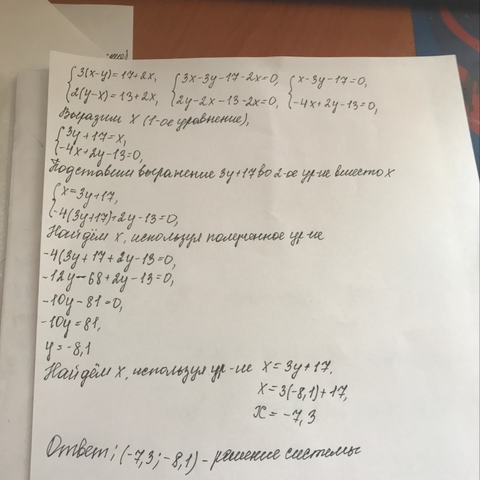 {3(x-y)=17+2x, {3x-3y-17-2x=0, {x-3y-17=0,
{2(y-x)=13+2x, {2y-2x-13-2x=0, {-4x+2y-13=0,
Выразим x (1-ое уравнение),
{3y+17=x,
{-4x+2y-13=0,
Подставим выражение 3y+17 во 2-ое ур-ие вместо x
{x=3y+17,
{-4(3y+17)+2y-13=0,
Найдём x, используя полученное ур-ие
-4(3y+17+2y-13=0,
-12y-68+2y-13=0,
-10y-81=0,
-10y=81,
y=-8,1
Найдём x, используя ур-ие x=3y+17.
x=3(-8,1)+17,
x=-7,3
Ответ: (-7,3; -8,1) - решение системы